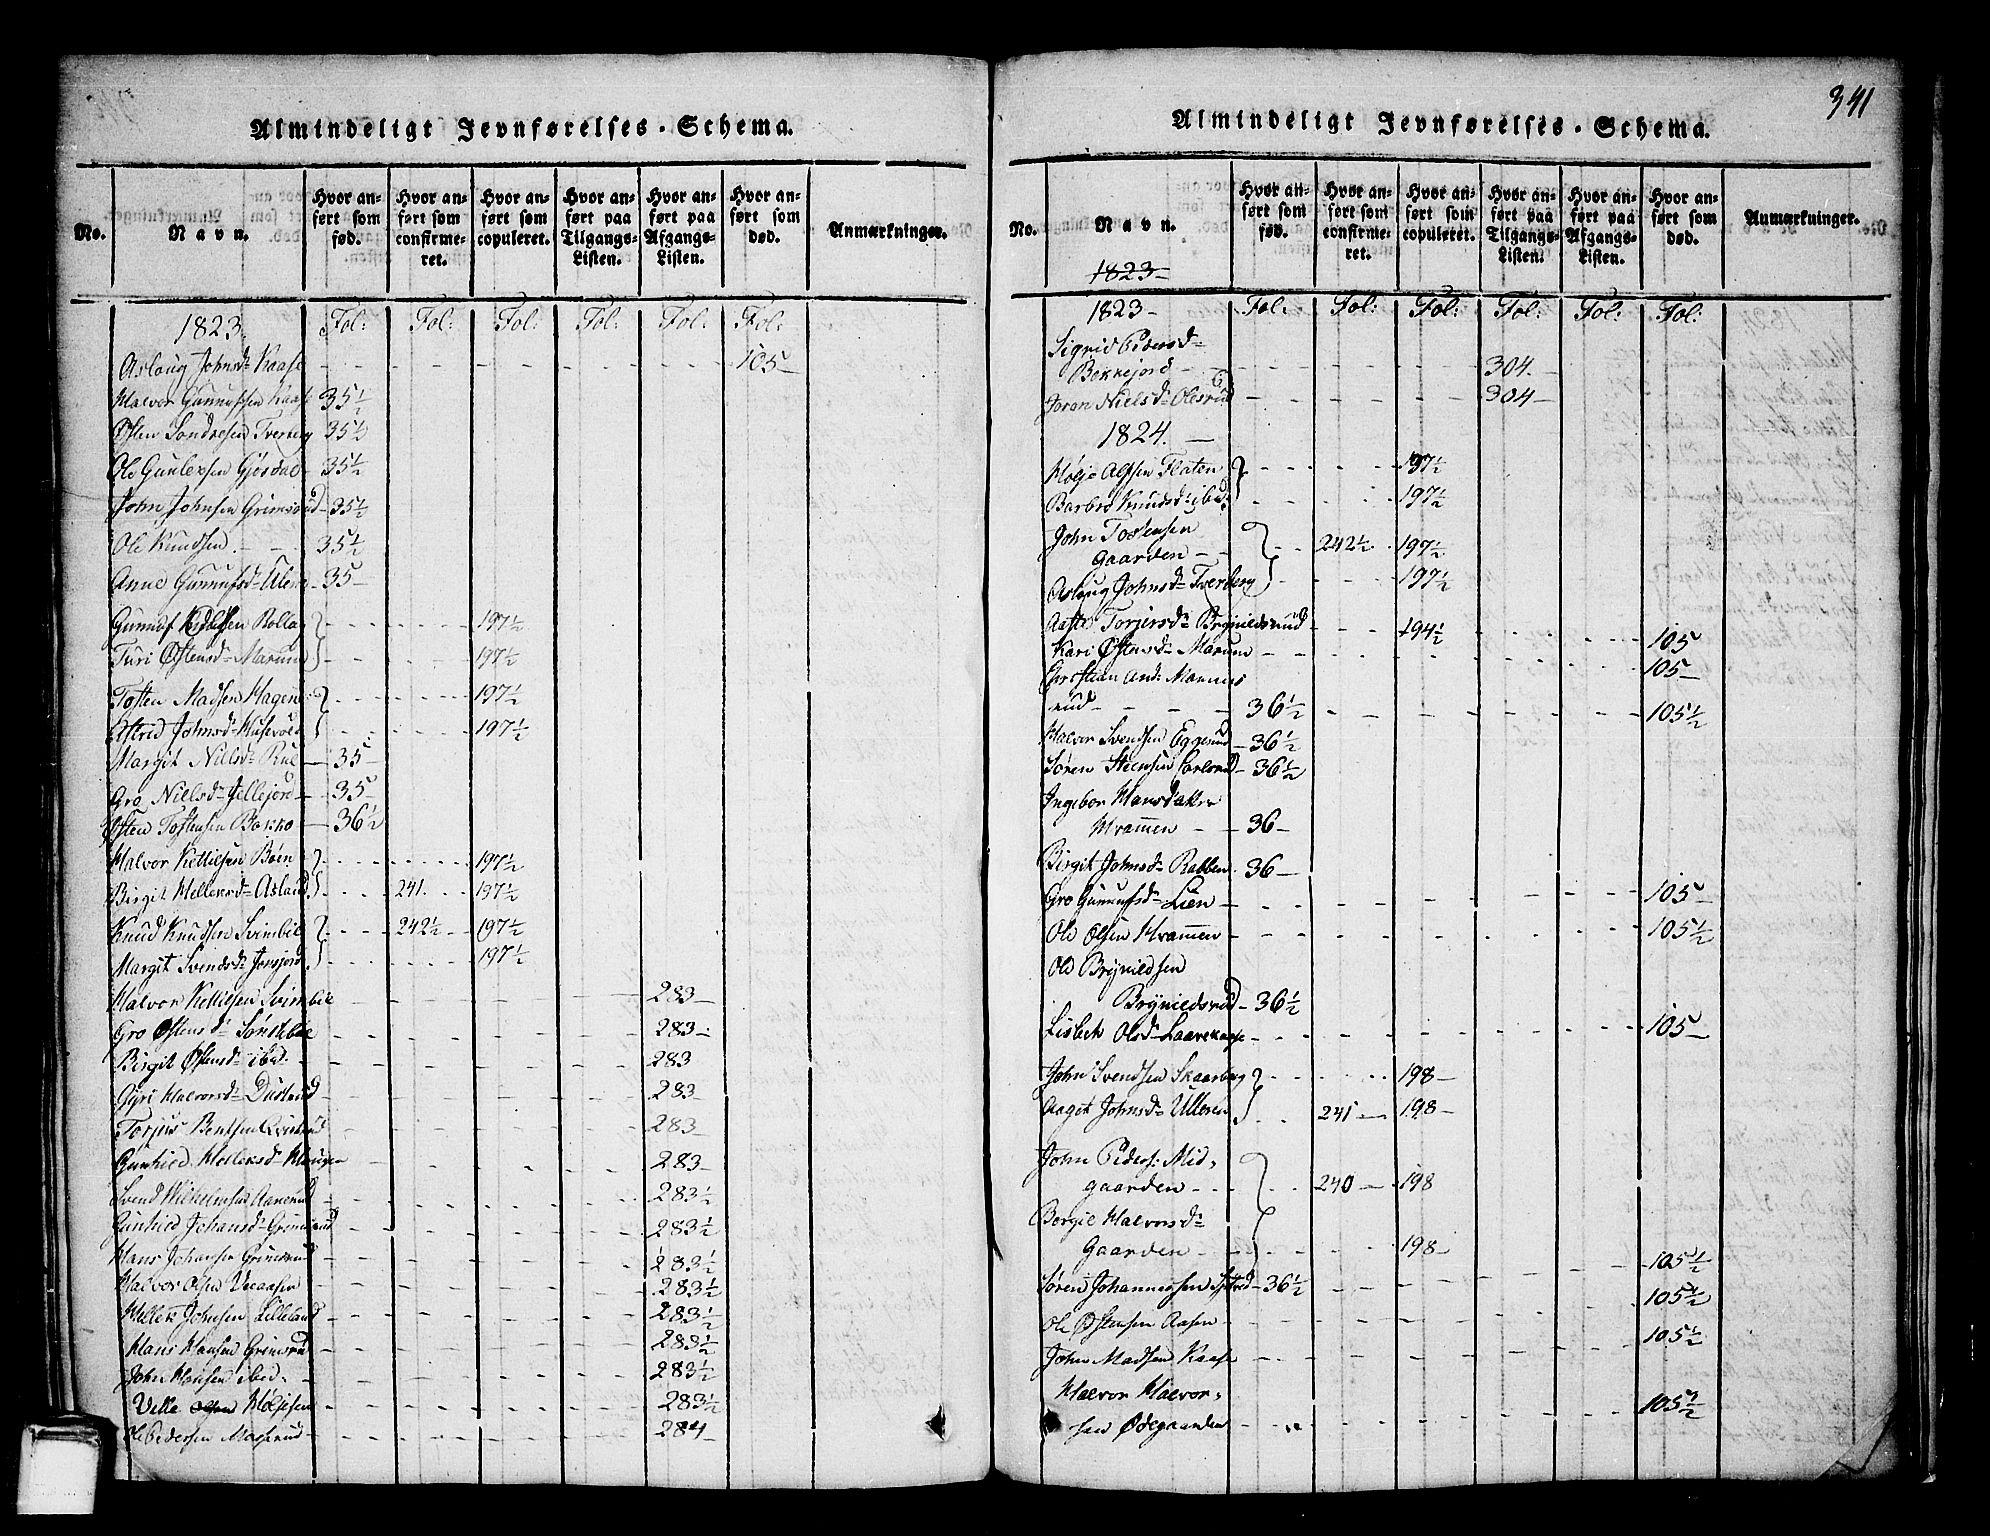 341
Almindeligt Jevnførelses-Schema.
No.
Navn.
Hvor anført som fød.
Hvor anført som confirmeret.
Hvor anført som copuleret.
Hvor anført paa Tilgangs-Listen.
Hvor anført paa Afgangs-Listen.
Hvor anført som død.
Anmærkninger.
1823 Fol: Fol: Fol: Fol: Fol: Fol:
Aslaug Johnsd: Kaase 105
Halvor Gunnufsen Kaase 35½
Østen Sondresen Tverberg 35½
Ole Gunleksen Gjøsdal 35½
John Johnsen Grimsrud 35½
Ole Knudsen 35½
Anne Gunnufsd: Ulen 35
Gunnuf Rollag 197½
Turi Østensd: Marum 197½
Tosten Madsen Hagen 197½
Astrid Johnsd: Husevold 197½
Margit Nielsd: Rue 35
Gro Nielsd: Jellejord 35
Østen Tostensen Bakko 36½
Halvor Kettilsen Børn 197½
Birgit Helleksd: Asland 241. 197½
Knud Knudsen Svimbil 242½ 197½
Margit Svendsd: Jonsjord 197½
Halvor Kettilsen Svimbil 283
Gro Østensd: 283
Birgit Østensd: ibid. 283
Gyri Halvorsd: Dusland 283
Torjus Bentsen 283
Gunhild Helleksd: Haugen 283
Svend Aanerud 283½
Gunhild Johansd: Grimsrud 283½
Hans Johansen Grimsrud 283½
Halvor Olsen 283½
Hellek Johnsen Lilleland 283½
Hans Hansen Grimsrud 283½
John Hansen ibid. 283½
Heljesen 283½
Ole Pedersen 284
Almindeligt Jevnførelses-Schema.
No.
Navn.
Hvor anført som fød.
Hvor anført som confirmeret.
Hvor anført som copuleret.
Hvor anført paa Tilgangs-Listen.
Hvor anført paa Afgangs-Listen.
Hvor anført som død.
Anmærkninger.
1823
1823 Fol: Fol: Fol: Fol: Fol: Fol:
Sigrid Pedersd:
Bekkejord 304
Joran Nielsd: Olesrud 304
1824.
Helje Flaten 197½
Barbro Knudsd: ibid: 197½
John Tostensen
Gaarden 242½ 197½
Aslaug Johnsd: Tverberg 197½
Aaste Torjersd: Brynildsrud 194½
Kari Østensd: Marum 105
Christian And: 105
rud 36½ 105½
Halvor Svendsen Eggerud 36½
Søren Steensen 36½
Ingebor Hansd:
Hvammen 36
Birgit Johnsd: Rabben 36
Gro Gunnufsd: Lien 105
Ole Olsen Hvammen 105½
Ole Brynildsen
Brynildsrud 36½
Lisbeth Olsd: Laavekaase 105
John Svendsen Skaarberg 198
Aagit Johnsd: Ulleren 241 198
John Peders: Mid-
gaarden 240 198
Bergit Halvorsd:
Gaarden 198
Søren Johannessen 36½ 105½
Ole Østensen Aasen 105½
John Madsen Kaase 105½
Halvor Halvor-
sen Ødegaarden 105½